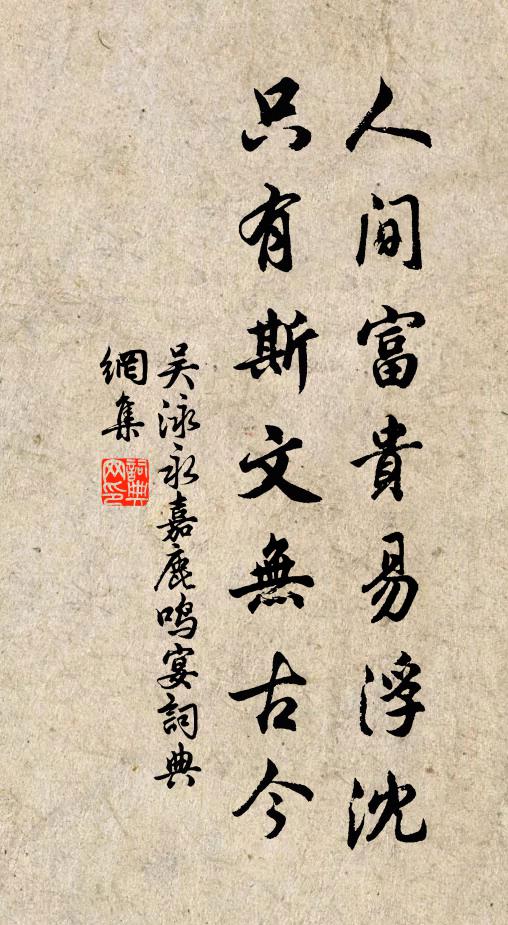 人間富貴易浮沈
只有斯文無古今
吴泳永嘉鹿鸣宴詞典
網集
詞典网印